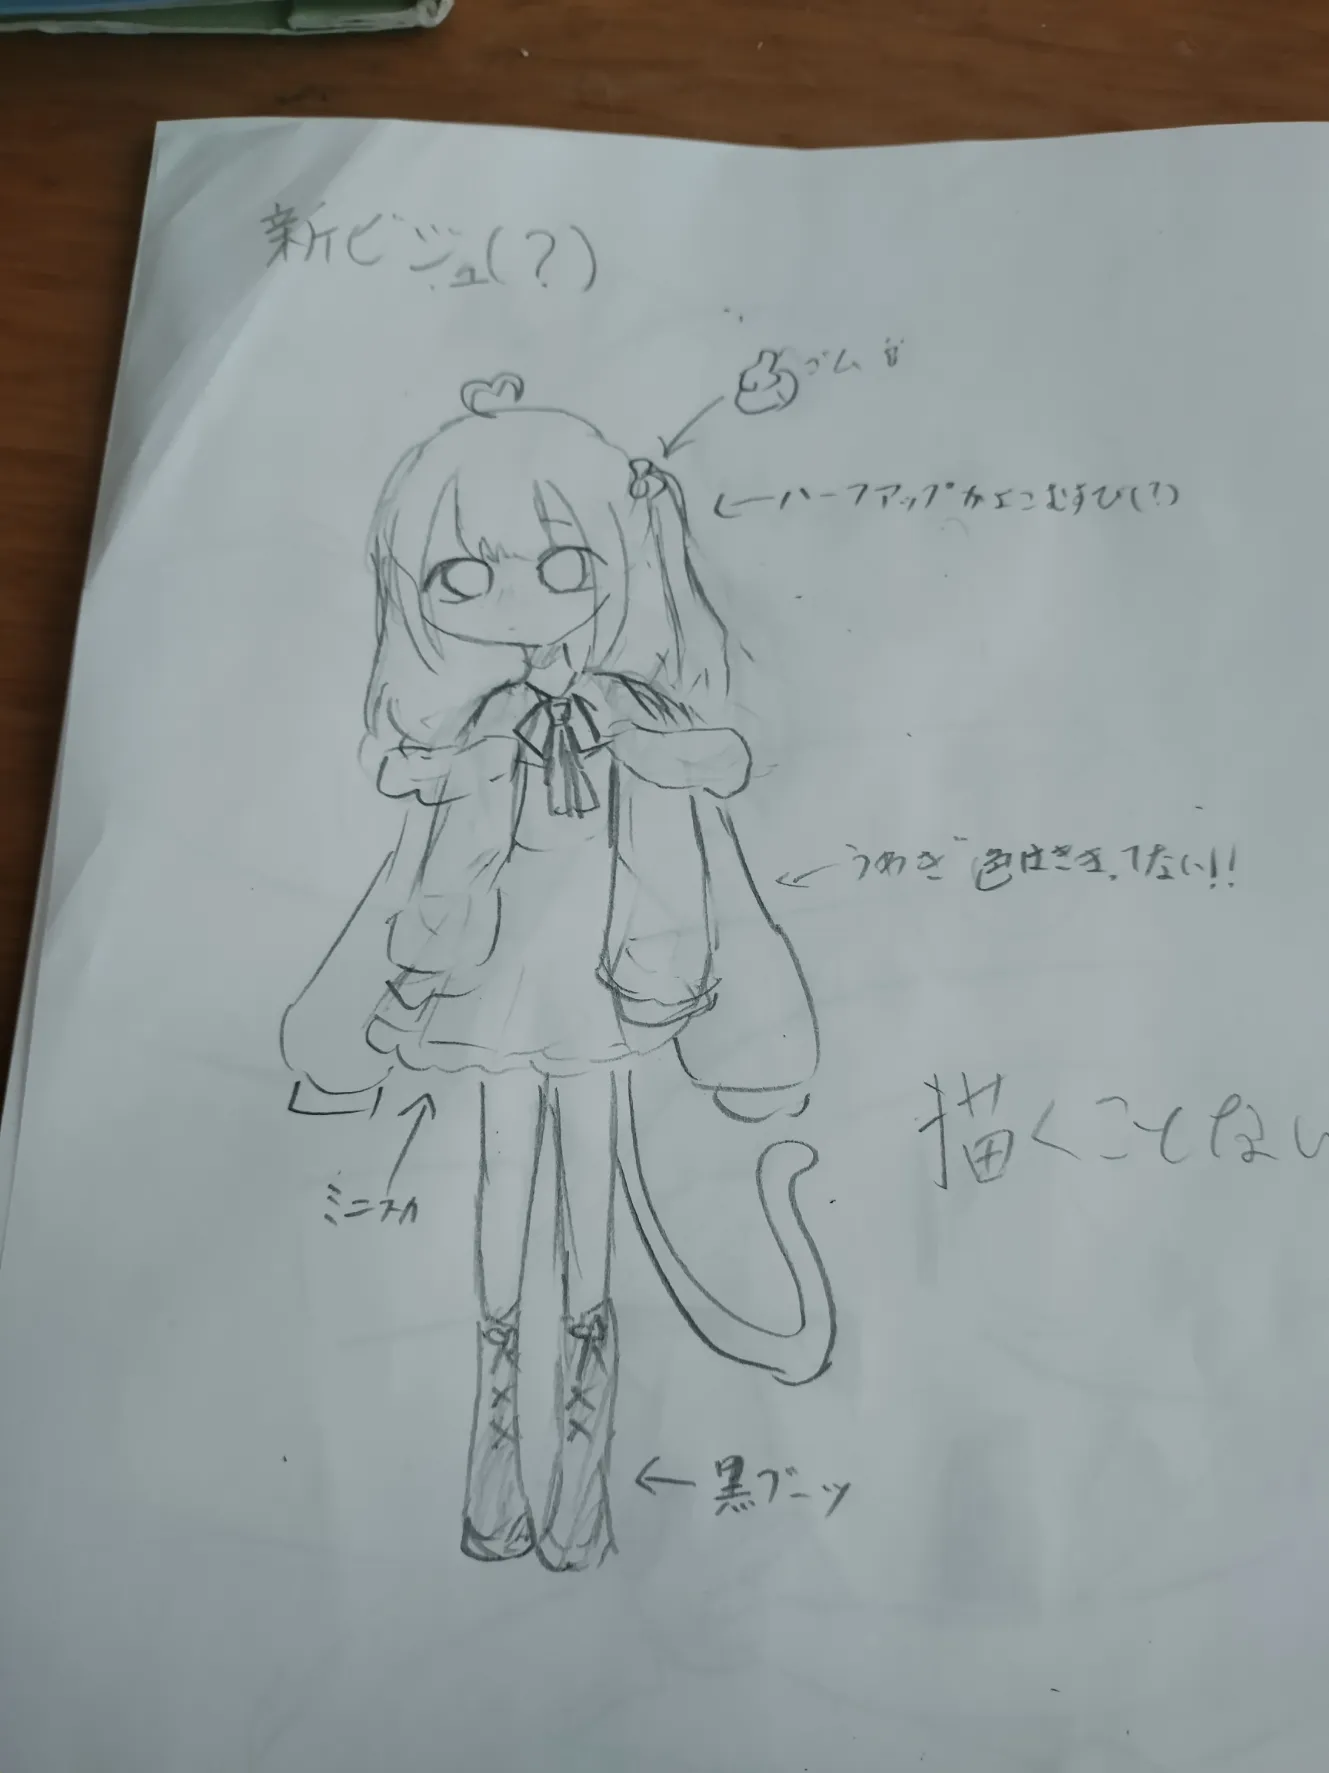 新ビジュ(?)
ゴム
ハーフアップかよこむすび(?)
うわぎ 色はきめてない!!
描くことない
ミニスカ
黒ブーツ